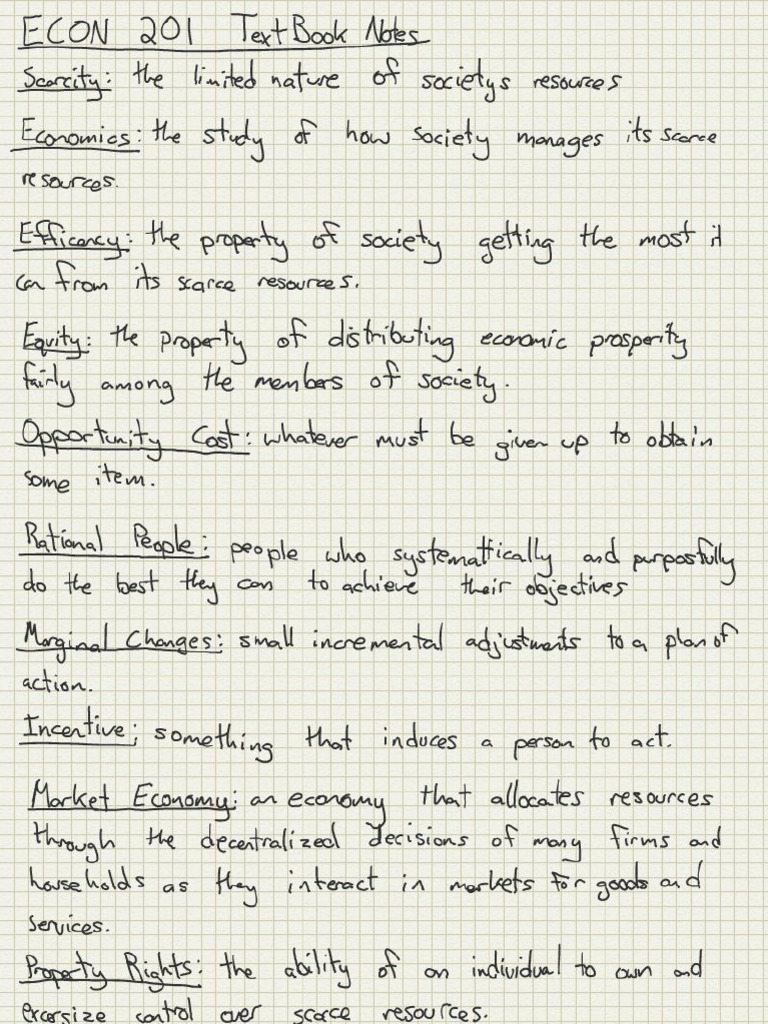 ECON 201 TextBook Notes
Scarcity: the limited nature of societys resources
Economics: the study of how society manages its scarce
resources.
Efficency: the property of society getting the most it
can from its scarce resources.
Equity: the property of distributing economic prosperity
fairly among the members of society.
Opportunity Cost: whatever must be given up to obtain
some item.
Rational People: people who systemattically and purposfully
do the best they can to achieve their objectives
Marginal Changes: small incremental adjustments to a plan of
action.
Incentive; something that induces a person to act.
Market Economy: an economy that allocates resources
through the decentralized decisions of many firms and
households as they interact in markets for goods and
services.
Property Rights: the ability of an individual to own and
excersize control over scarce resources.